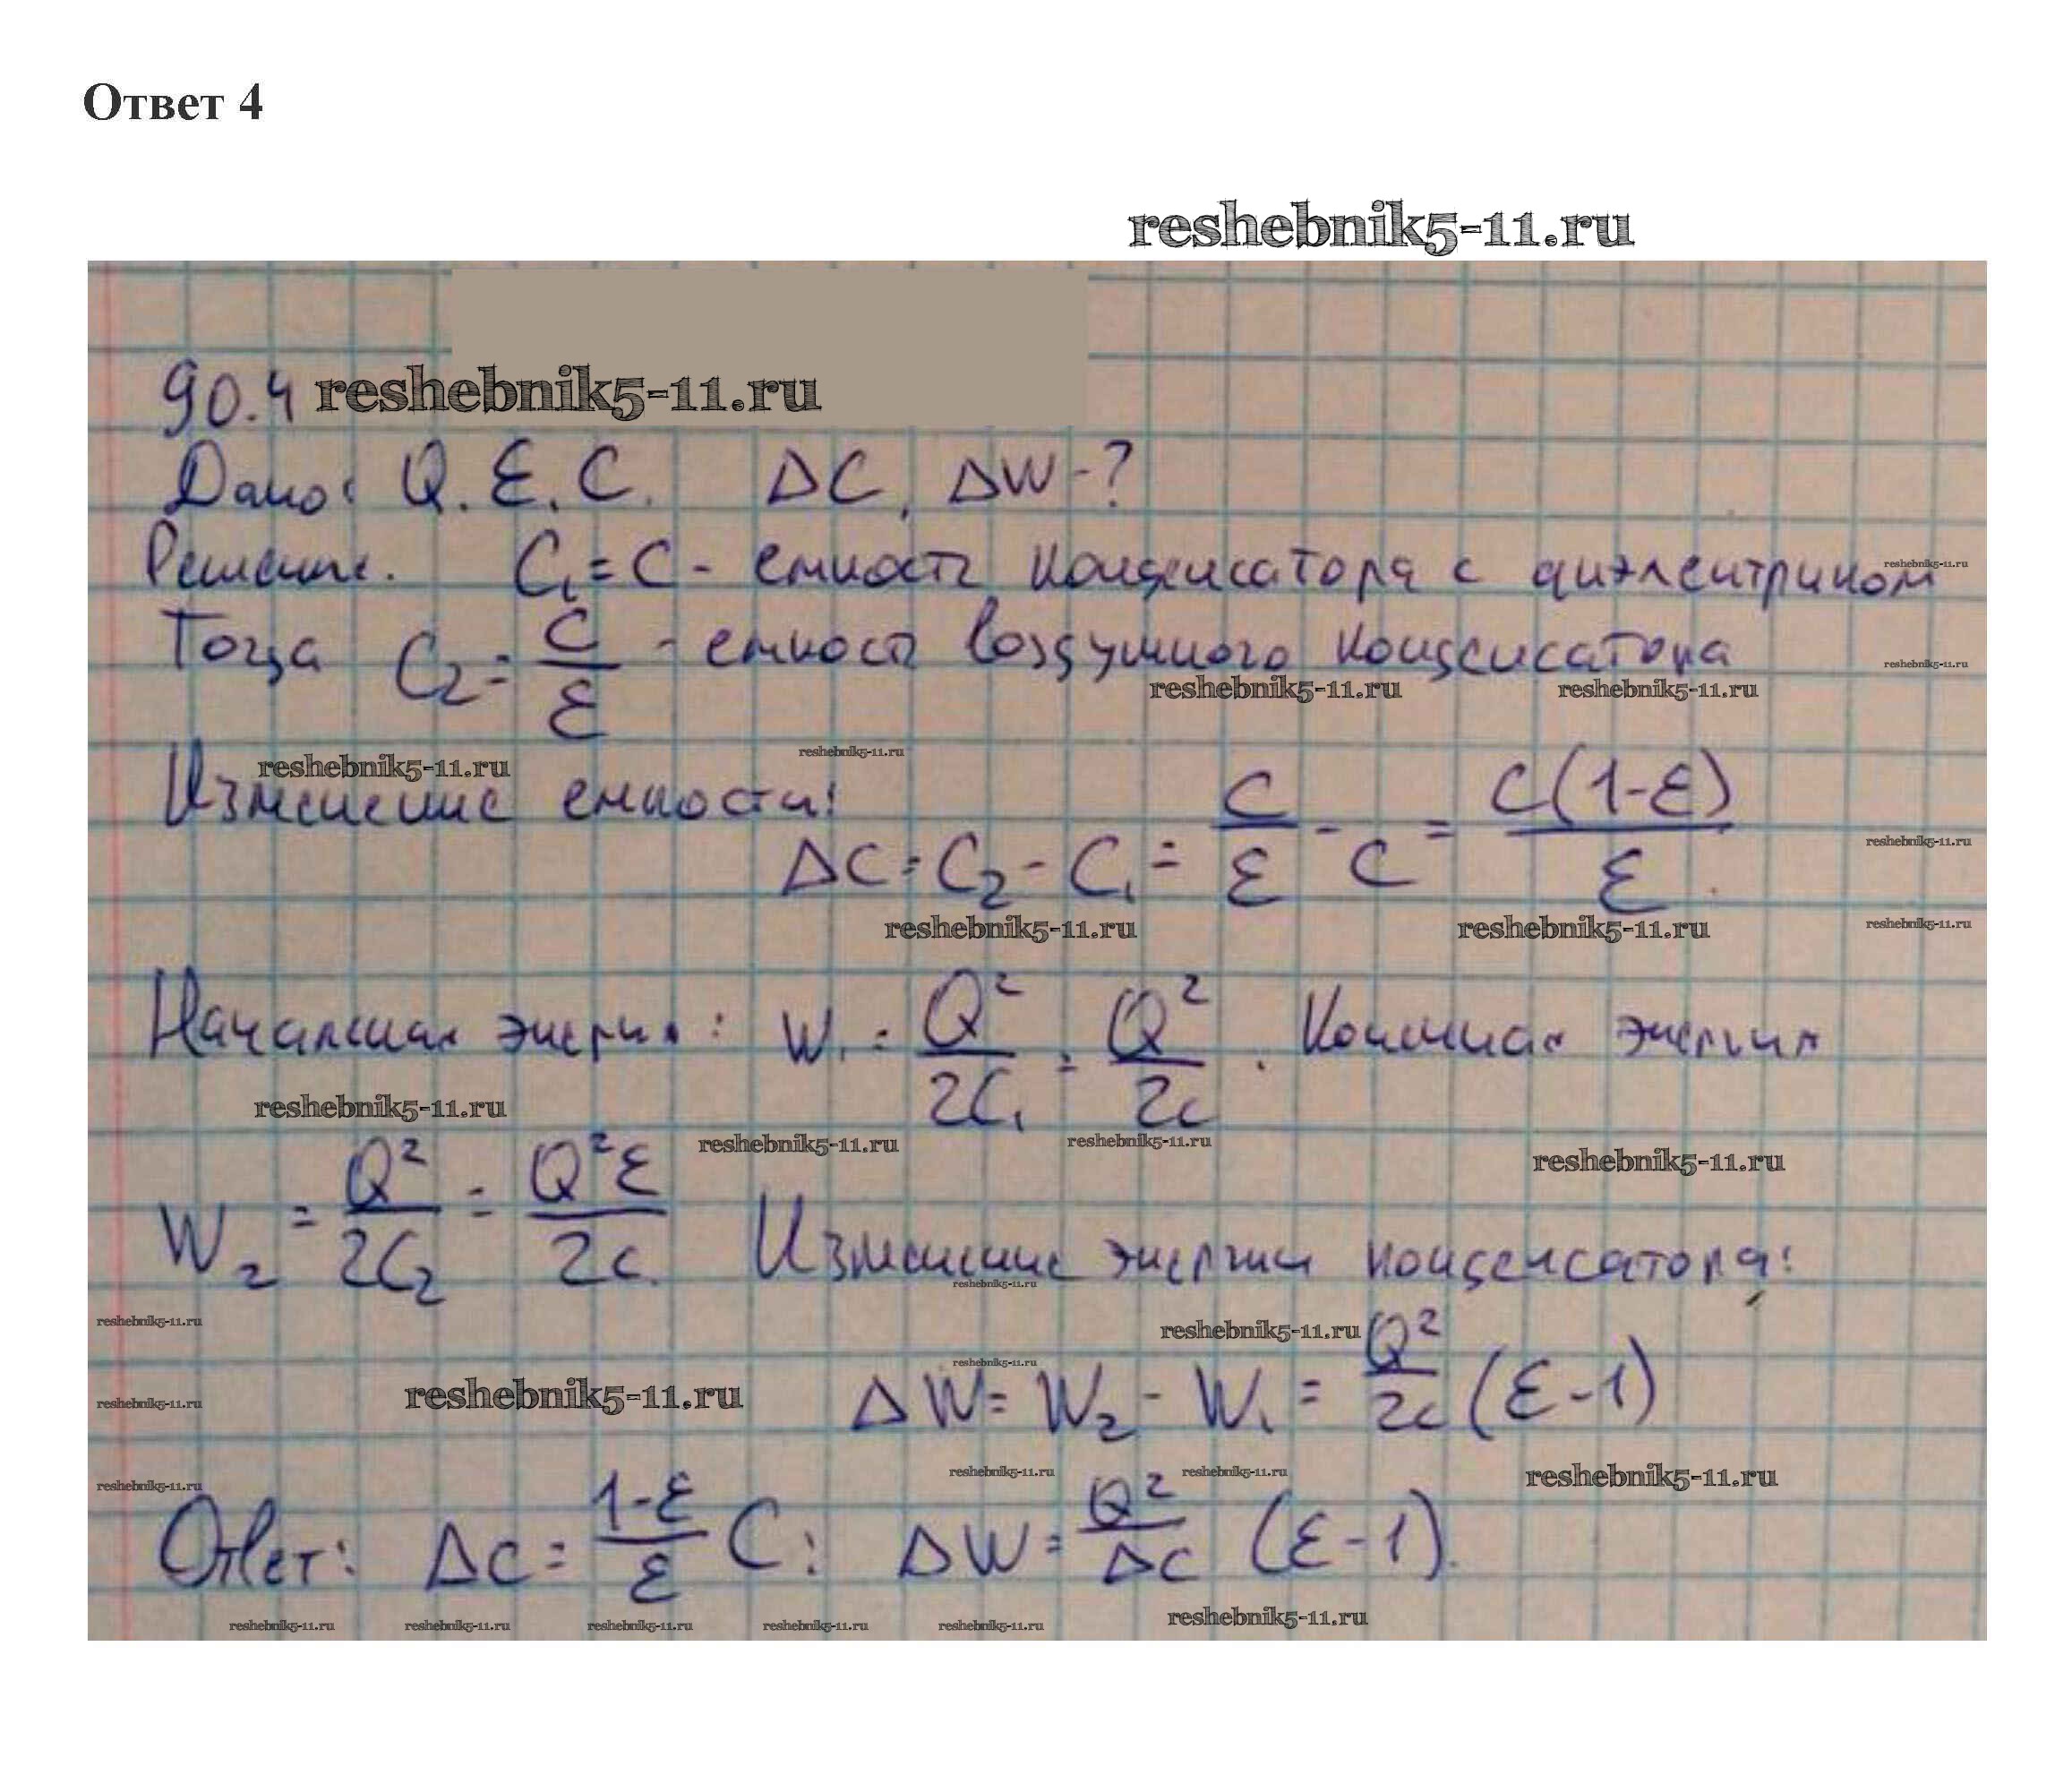 Ответ 4
reshebnik5-11.ru
90.4 reshebnik5-11.ru
Дано: Q. Ɛ. C. ΔC, ΔW-?
Решение. C₁=C - емкость конденсатора с диэлектриком reshebnik5-11.ru
Тогда C₂ = C/Ɛ - емкость воздушного конденсатора reshebnik5-11.ru
reshebnik5-11.ru reshebnik5-11.ru
reshebnik5-11.ru reshebnik5-11.ru
Изменение емкости:
ΔC = C₂ - C₁ = C/Ɛ - C = C(1-Ɛ)/Ɛ. reshebnik5-11.ru
reshebnik5-11.ru reshebnik5-11.ru reshebnik5-11.ru
Начальная энергия: W₁ = Q²/2C₁ = Q²/2C. Конечная энергия
reshebnik5-11.ru reshebnik5-11.ru reshebnik5-11.ru reshebnik5-11.ru
W₂ = Q²/2C₂ = Q²Ɛ/2C. Изменение энергии конденсатора:
reshebnik5-11.ru
reshebnik5-11.ru reshebnik5-11.ru
reshebnik5-11.ru
reshebnik5-11.ru reshebnik5-11.ru ΔW = W₂ - W₁ = Q²/2C (Ɛ-1)
reshebnik5-11.ru reshebnik5-11.ru reshebnik5-11.ru reshebnik5-11.ru
Ответ: ΔC = 1-Ɛ/Ɛ C; ΔW = Q²/ΔC (Ɛ-1).
reshebnik5-11.ru reshebnik5-11.ru reshebnik5-11.ru reshebnik5-11.ru reshebnik5-11.ru reshebnik5-11.ru